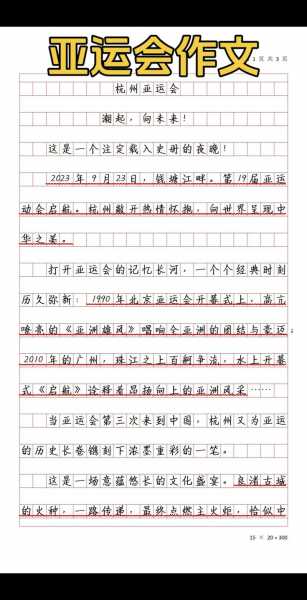 亚运会作文
1 页 共 3 页
杭州亚运会
潮起，向未来！
这是一个注定载入史册的夜晚！
2023 年 9 月 23 日，钱塘江畔。第 19 届亚运
动会启航。杭州敞开热情怀抱，向世界呈现中
华之美。
打开亚运会的记忆长河，一个个经典时刻
历久弥新：1990 年北京亚运会开幕式上，高亢
嘹亮的《亚洲雄风》唱响全亚洲的团结与豪迈；
2010 年的广州，珠江之上百舸争流，水上开幕
式《启航》诠释着昂扬向上的亚洲风采……
当亚运会第三次来到中国，杭州又为亚运
的历史长卷镌刻下浓墨重彩的一笔。
这是一场意蕴悠长的文化盛宴。良渚古城
的火种，一路传递，最终点燃主火炬，恰似中
15 × 20 = 300